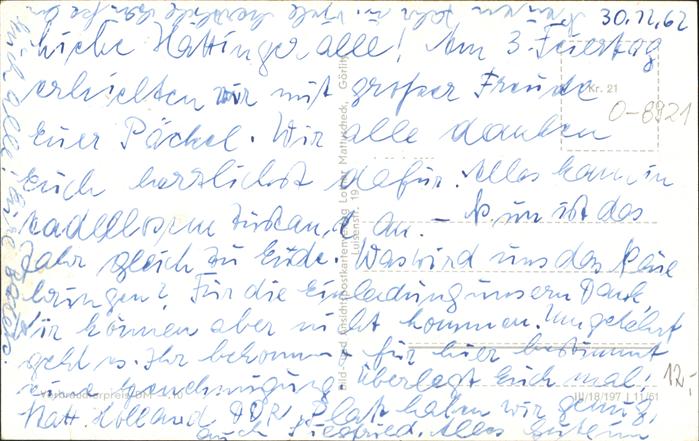 30.12.62
Liebe Hattinger alle! Am 3. Feiertag
erhielten wir mit großer Freude
Euer Päckel. Wir alle danken
Euch herzlichst dafür. Alles kam in
tadellosem Zustand an. – Nun ist das
Jahr gleich zu Ende. Was wird uns das Neue
bringen? Für die Einladung unsern Dank,
Wir können aber nicht kommen. Umgekehrt
geht es. Ihr bekommt für hier bestimmt
eine Genehmigung. Überlegt Euch mal:
statt Holland DDR. Platz haben wir genug.
auch Siegfried. Alles Gute im
Neuen Jahr u. viele herzliche
alle! Eure
Kr. 21
0-8921
12,-
Bild- und Ansichtspostkartenverlag Lo Mattuscheck, Görlitz
Luisenstr. 19
Verbraucherpreis DM
III/18/197 11/61